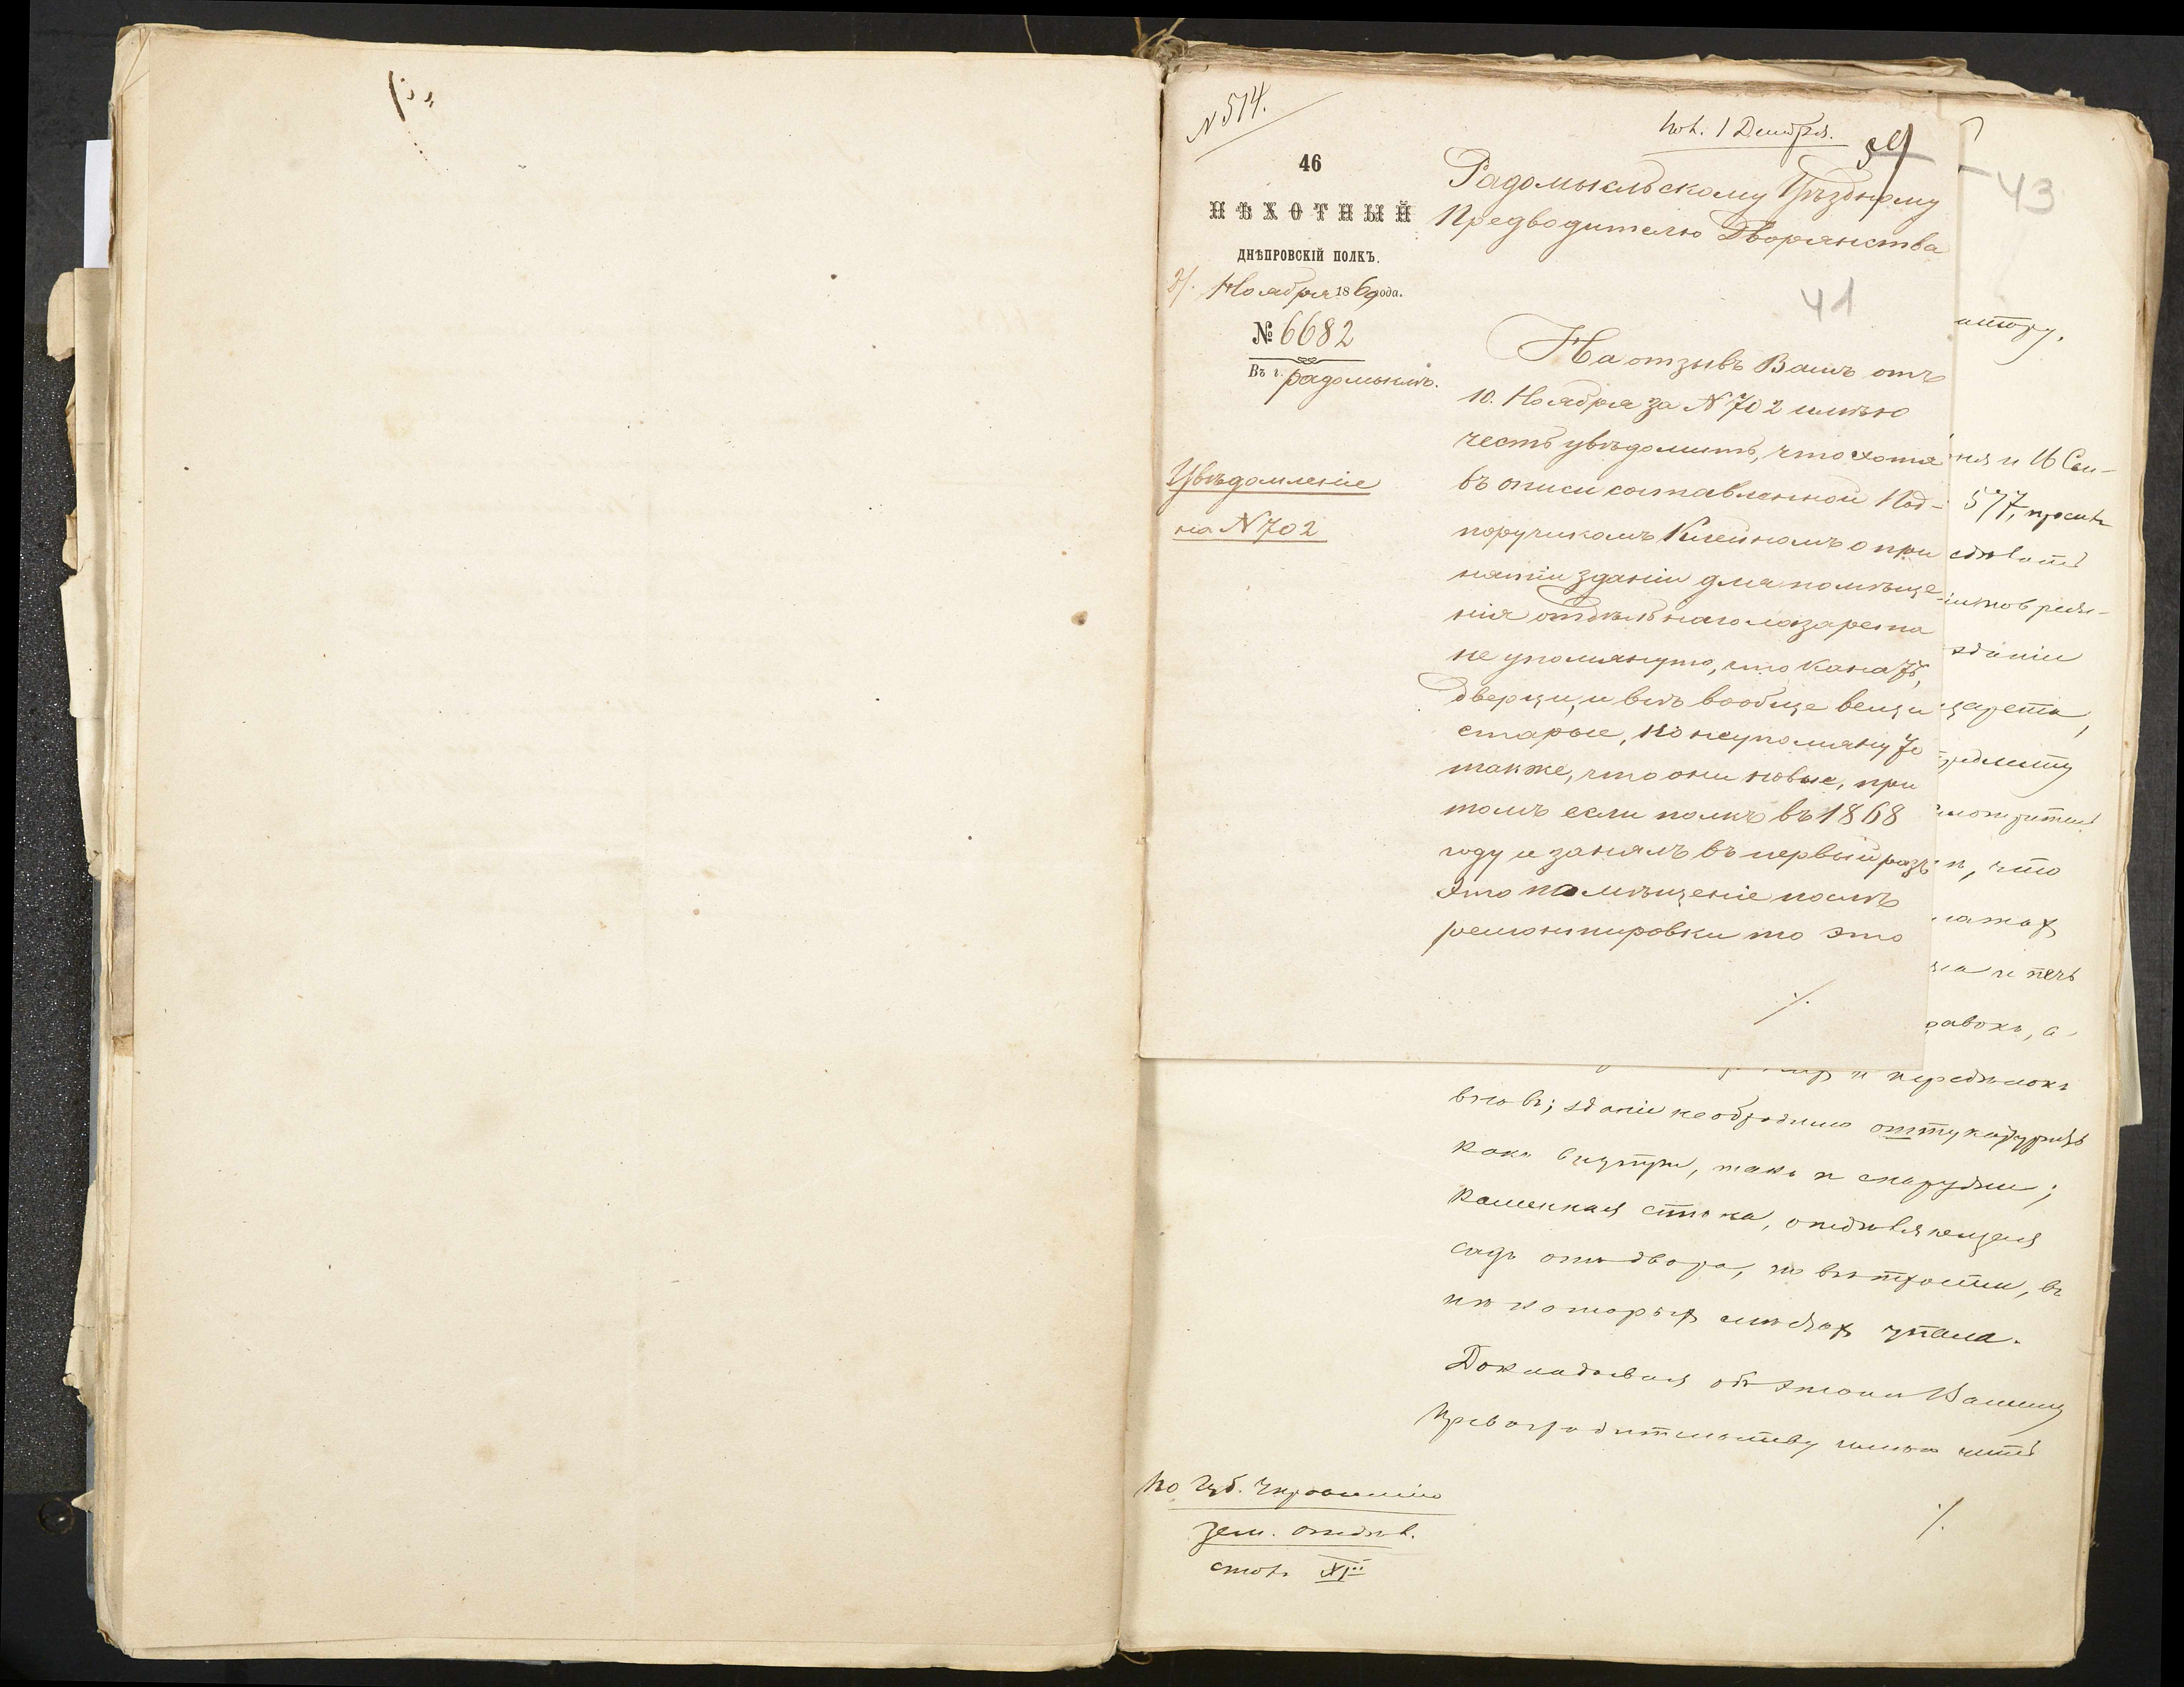 № 514.
46
ПѢХОТНЫЙ
ДНѢПРОВСКІЙ ПОЛКЪ.
Ноября 1869 года.
№ 6682
Въ г. Радомыслѣ.
Увѣдомленіе
на № 702
пол. 1 Декабря.
Радомысльскому Уѣздному
Предводителю Дворянства
41
На отзывъ Вашъ отъ
10. Ноября за № 702 имѣю
честь увѣдомить, что хотя
въ описи составленной Под-
поручикомъ о при
нятіи зданіи для помѣще
нія отдѣльнаго лазарета
не упомянуто, что
дверцы, и всѣ вообще вещи
старые, но неупомянуто
также, что они новые, при
томъ если полкъ въ 1868
году и занялъ въ первый разъ
это помѣщеніе послѣ
ремонтировки то это
./.
43
нія и 16 Сен-
577, просить
зданіи
зарета,
ъ, что
на и печь
равокъ, а
и передѣлокъ
вновь; зданіе необходимо оштукатурить
какъ внутри, такъ и снаружи;
каменная стѣна, отдѣляющая
садъ отъ двора, по ветхости, въ
нѣкоторыхъ мѣстахъ упала.
Докладывая объ этомъ Вашему
Превосходительству имѣю честь
./.
По Губ. Управленію
отдѣл.
столъ XI